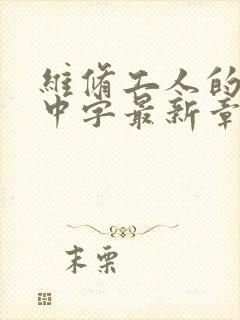 維脩工人的
中字最新章
末栗